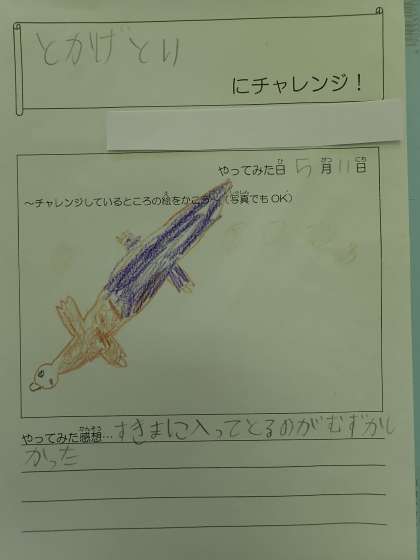 とかげとり
にチャレンジ！
やってみた日 5月11日
～チャレンジしているところの絵をかこう～（写真でもOK）
やってみた感想…すきまに入ってとるのがむずかし
かった